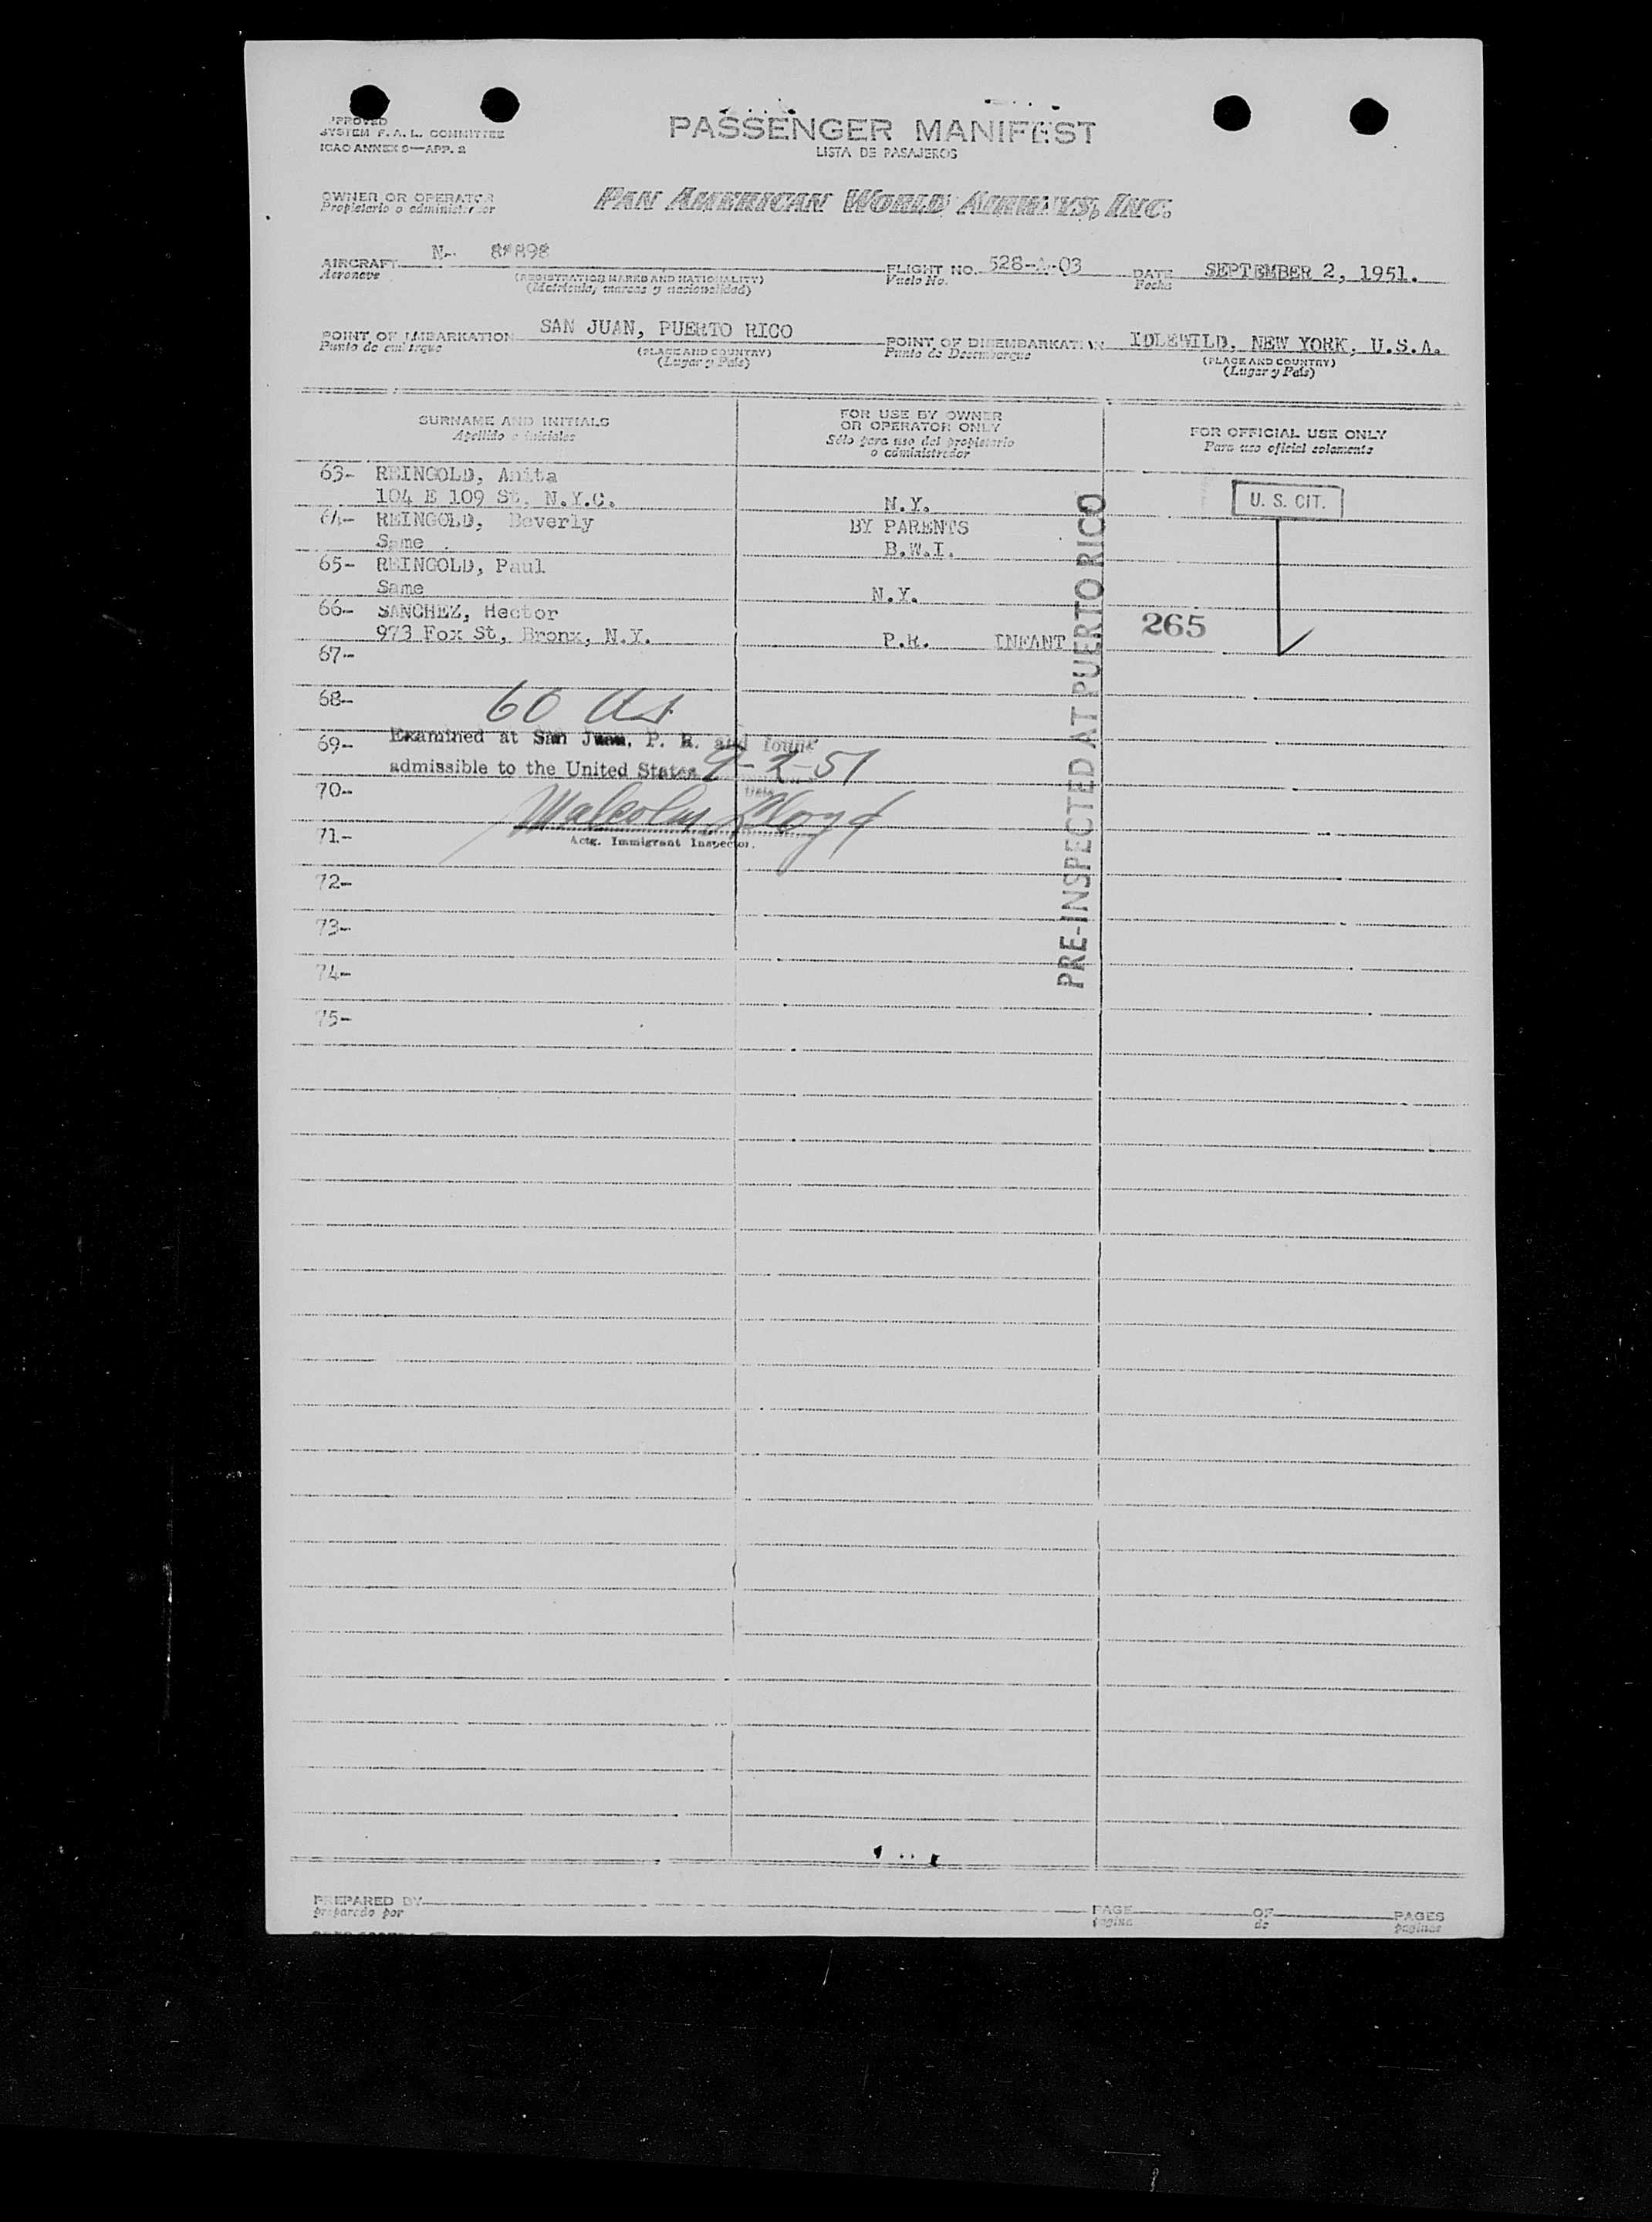 APPROVED
SYSTEM F. A. L. COMMITTEE
ICAO ANNEX 9—APP. 2
PASSENGER MANIFEST
LISTA DE PASAJEROS
OWNER OR OPERATOR
Propietario o administrador
PAN AMERICAN WORLD AIRWAYS, INC.
AIRCRAFT N-
Aeronave
(REGISTRATION MARKS AND NATIONALITY)
(Matrícula, marcas y nacionalidad)
FLIGHT NO.
Vuelo No.
DATE SEPTEMBER 2, 1951.
Fecha
POINT OF EMBARKATION SAN JUAN, PUERTO RICO
Punto de embarque
(PLACE AND COUNTRY)
(Lugar y País)
POINT OF DISEMBARKATION IDLEWILD, NEW YORK, U.S.A.
Punto de Desembarque
(PLACE AND COUNTRY)
(Lugar y País)
SURNAME AND INITIALS
Apellido e iniciales
FOR USE BY OWNER
OR OPERATOR ONLY
Sólo para uso del propietario
o administrador
FOR OFFICIAL USE ONLY
Para uso oficial solamente
63- REINGOLD, Anita
104 E 109 St. N.Y.C. N.Y.
U. S. CIT.
64- REINGOLD, Beverly BY PARENTS
Same B.W.I.
65- REINGOLD, Paul
Same N.Y.
66- SANCHEZ, Hector
973 Fox St, Bronx, N.Y. P.R. INFANT
265
PRE-INSPECTED AT PUERTO RICO
67-
68-
60
69-
Examined at San Juan, P. R. and found
admissible to the United States 9-2-51
Date
70-
Malcolm Lloyd
71-
Actg. Immigrant Inspector.
72-
73-
74-
75-
PREPARED BY
preparado por
PAGE OF PAGES
página de páginas